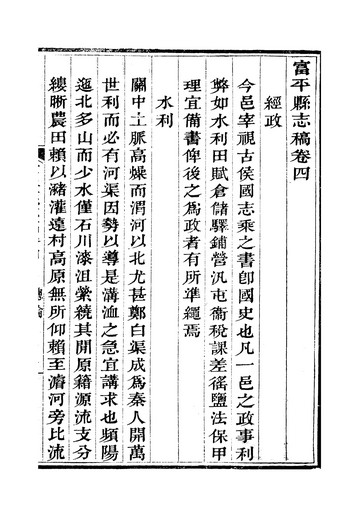 富平縣志稿卷四
經政
今邑宰視古侯國志乘之書卽國史也凡一邑之政事利
弊如水利田賦倉儲驛鋪營汛屯衞稅課差徭鹽法保甲
理宜備書俾後之爲政者有所準繩焉
水利
關中土脈高燥而渭河以北尤甚鄭白渠成爲秦人開萬
世利而必有河渠因勢以導是溝洫之急宜講求也頻陽
迤北多山而少水僅石川漆沮縈繞其開原籍源流支分
縷晰農田賴以瀦灌遠村高原無所仰賴至濇河旁比流